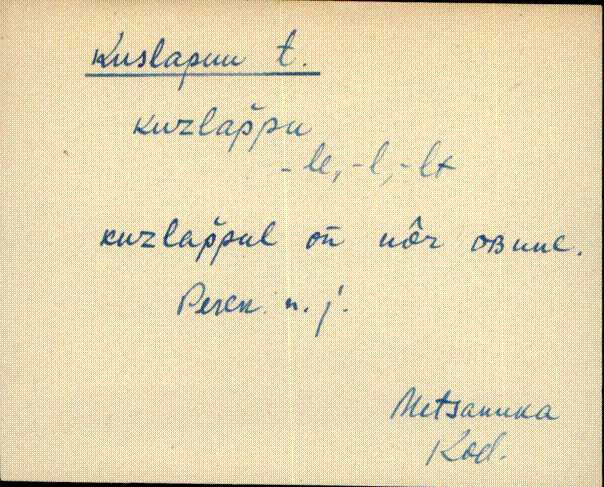 Kuslapuu t.
kuzlap̆pu
-le, -l, -lt
kuzlap̆pul on̄ nôr oʙune.
Peren. n. j.
Metsanuka
Kod.